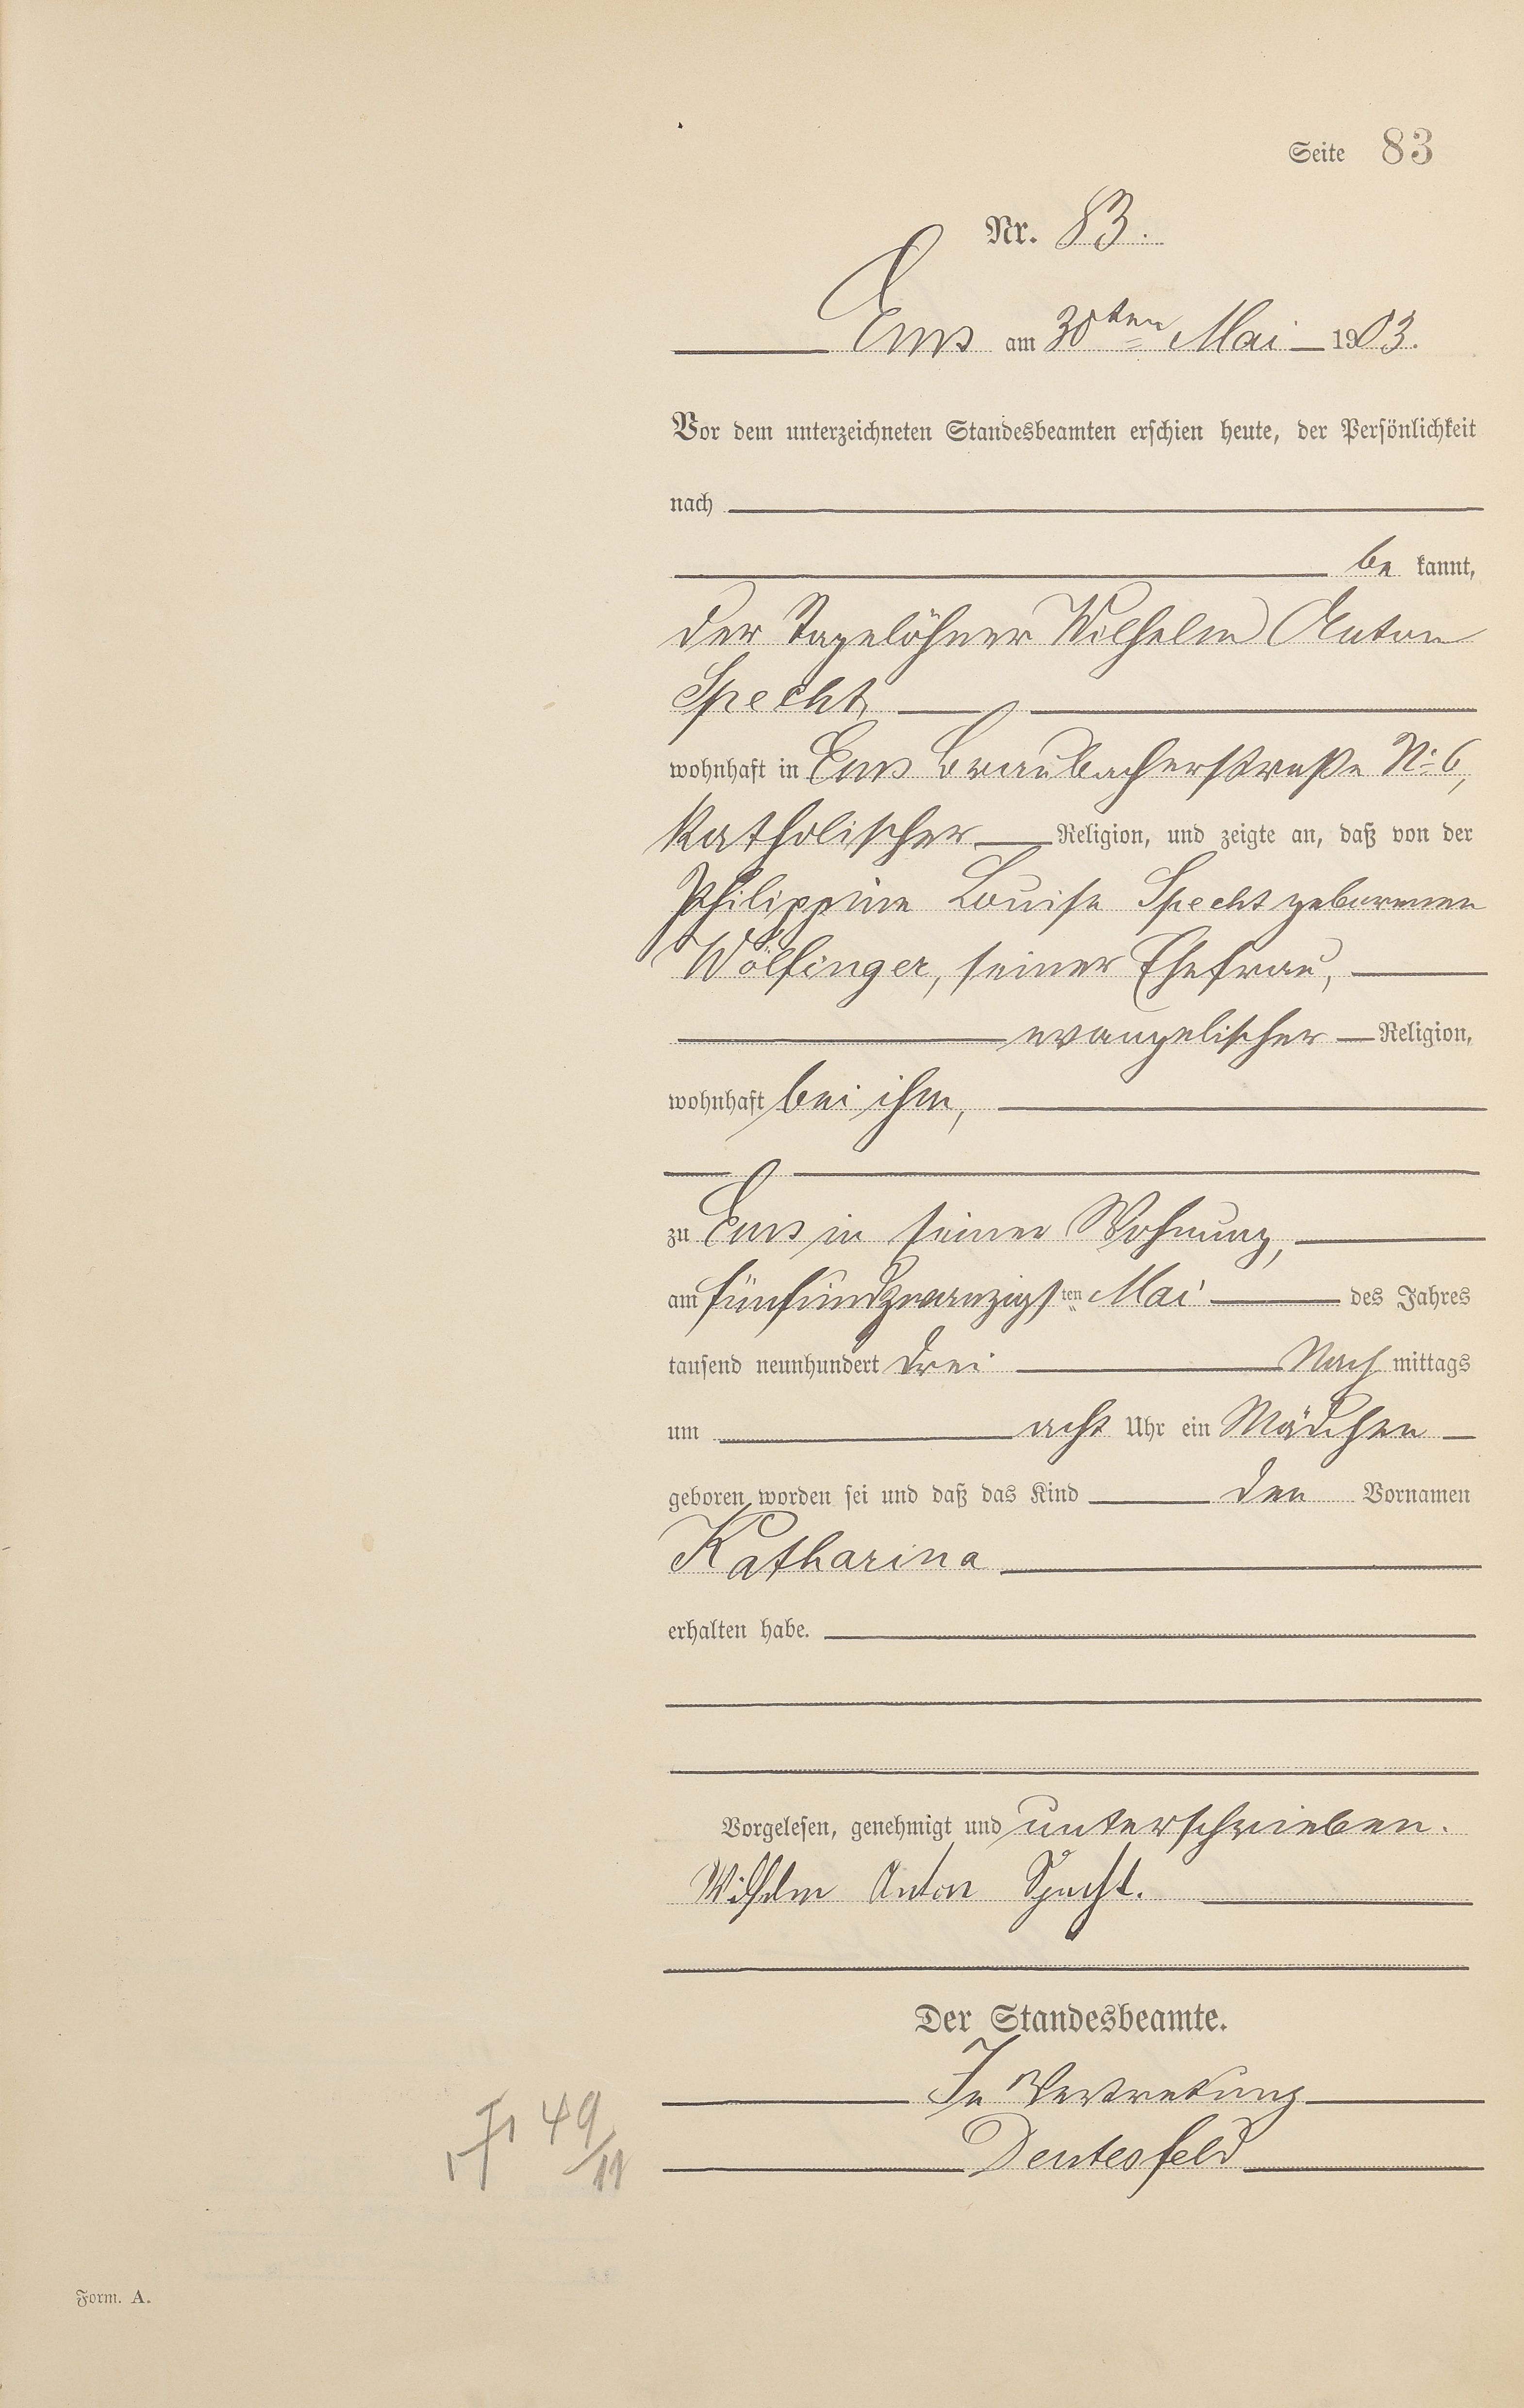 Seite 83
Nr. 83.
Ems am 30ten Mai 1903.
Vor dem unterzeichneten Standesbeamten erschien heute, der Persönlichkeit
nach
be kannt,
der Tagelöhner Wilhelm Anton
Specht,
wohnhaft in Ems Braubacherstraße No 6,
katholischer Religion, und zeigte an, daß von der
Philippine Louise Specht geborenen
Wölfinger, seiner Ehefrau,
evangelischer Religion,
wohnhaft bei ihm,
zu Ems in seiner Wohnung,
am fünfundzwanzigsten Mai des Jahres
tausend neunhundert drei Nach mittags
um acht Uhr ein Mädchen
geboren worden sei und daß das Kind den Vornamen
Katharina
erhalten habe.
Vorgelesen, genehmigt und unterschrieben.
Wilhelm Anton Specht.
Der Standesbeamte.
In Vertretung
49
/11
Form. A.